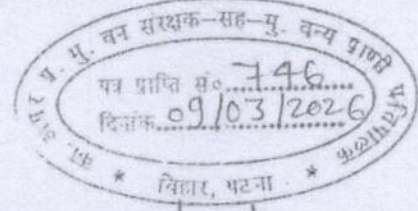 का. अपर प्र. मु. वन संरक्षक-सह-मु. वन्य प्राणी प्रतिपालक
पत्र प्राप्ति सं० 746
दिनांक 09/03/2026
* बिहार, पटना *